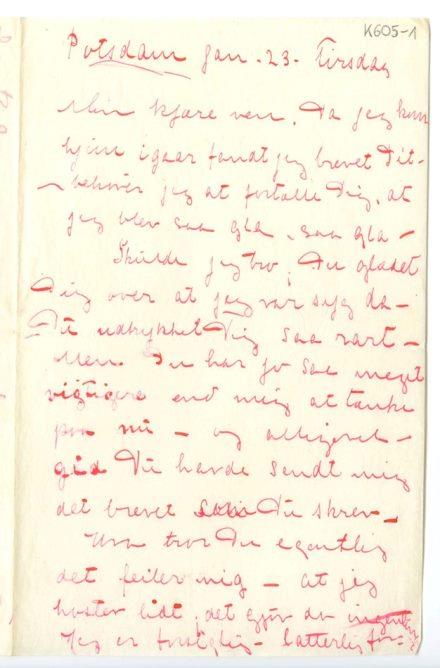 K605-1
Potsdam Jan. 23. Tirsdag
Min kjære ven. Da jeg kom
hjem igaar fandt jeg brevet Dit –
– behøver jeg at fortælle Dig, at
jeg blev saa gla, saa gla –
Skulde jeg tro, Du glædet
Dig over at jeg var syg da –
Du udtrykket Dig saa rart –
Men. Du har jo saa meget
vigtigere end mig at tænke
paa nu – og alligevel –
gid Du havde sendt mig
det brevet som Du skrev –
Hva tror Du egentlig
det feiler mig – at jeg
hoster lidt, det gjør da ingenting
Jeg er forstølig – latterlig for-